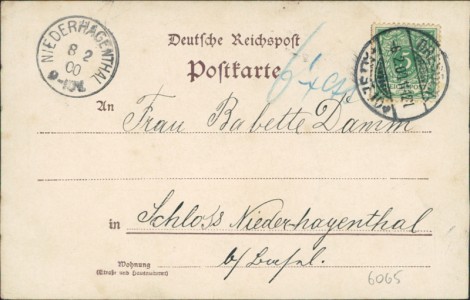 NIEDERHAGENTHAL
8 2
00
Deutsche Reichspost
Postkarte
An
Frau Babette Damm
in
Schloss Niederhagenthal
b/ Basel.
Wohnung
(Straße und Hausnummer)
6065